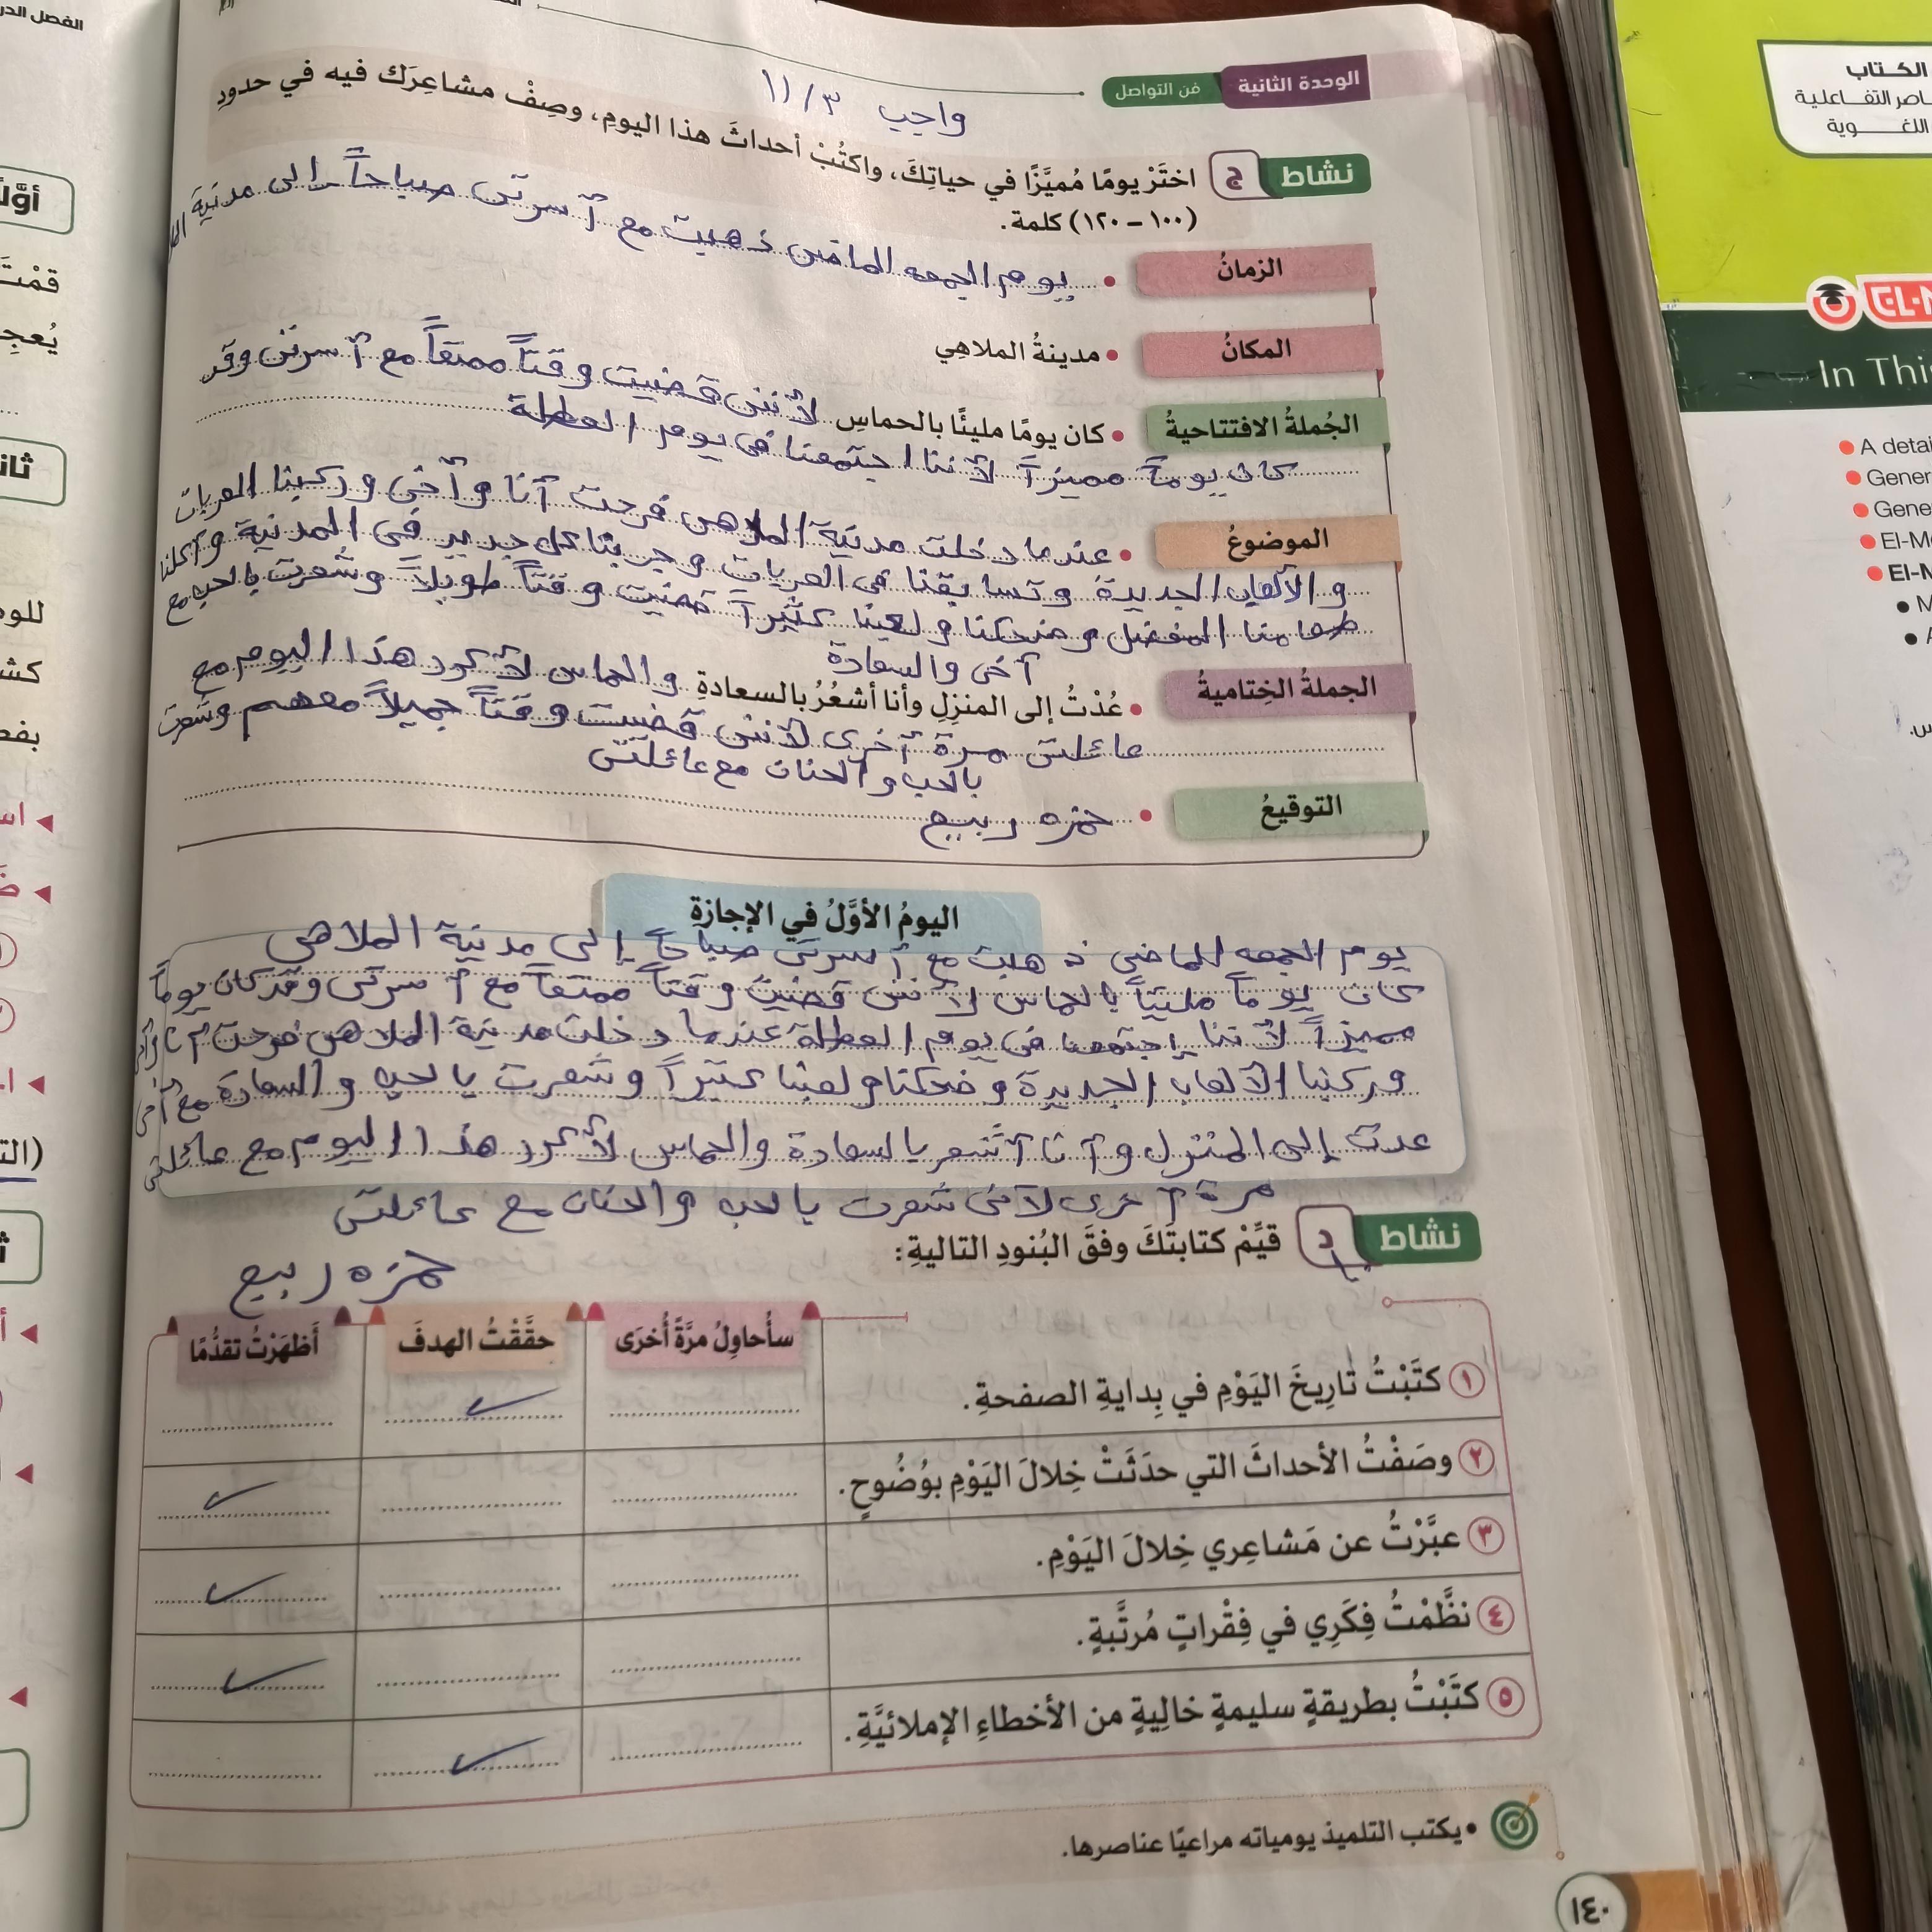 الوحدة الثانية
فن التواصل
واجب ١١/٣
نشاط ج اختَرْ يومًا مُميَّزًا في حياتِكَ، واكتُبْ أحداثَ هذا اليومِ، وصِفْ مشاعِرَك فيه في حدودِ
(١٠٠ – ١٢٠) كلمة.
الزمانُ
• يوم الجمعه الماضى ذهبت مع أسرتى صباحاً إلى مدنية
المكانُ
• مدينةُ الملاهِي
الجُملةُ الافتتاحيةُ
• كان يومًا مليئًا بالحماسِ لأننى قضيت وقتاً ممتعاً مع أسرتى وقد
كان يوماً مميزاً لأننا اجتمعنا فى يوم العطلة
الموضوعُ
• عندما دخلت مدنية الملاهى فرحت أنا وأخى وركبنا العربات
والألعاب الجديدة وتسابقنا فى العربات وجربنا كل جديد فى المدنية وأكلنا
طعامنا المفضل وضحكنا ولعبنا كثيراً قضيت وقتاً طويلاً وشعرت بالحب مع
أخى والسعادة
الجملةُ الخِتاميةُ
• عُدْتُ إلى المنزِلِ وأنا أشعُرُ بالسعادةِ والحماس لأكرر هذا اليوم مع
عائلتى مرة أخرى لأننى قضيت وقتاً جميلاً معهم وشعرت
بالحب والحنان مع عائلتى
التوقيعُ
• حمزه ربيع
اليومُ الأوَّلُ في الإجازة
يوم الجمعه الماضى ذهبت مع أسرتى صباحاً إلى مدنية الملاهى
كان يوماً مليئاً بالحماس لأننى قضيت وقتاً ممتعاً مع أسرتى وقد كان يوماً
مميزاً لأننا إجتمعنا فى يوم العطلة عندما دخلت مدنية الملاهى فرحت أنا
وركبنا الألعاب الجديدة وضحكنا ولعبنا كثيراً وشعرت بالحب والسعادة مع أخى
عدت إلى المنزل وأنا أشعر بالسعادة والحماس لأكرر هذا اليوم مع عائلتى
مرة أخرى لأنى شعرت بالحب والحنان مع عائلتى
حمزه ربيع
نشاط د قيِّمْ كتابتَكَ وفقَ البُنودِ التاليةِ:
سأُحاوِلُ مرَّةً أُخرَى
حقَّقْتُ الهدفَ
أَظهَرْتُ تقدُّمًا
١ كتَبْتُ تاريخَ اليَوْمِ في بِدايةِ الصفحةِ.
٢ وصَفْتُ الأحداثَ التي حدَثَتْ خِلالَ اليَوْمِ بوُضُوحٍ.
٣ عبَّرْتُ عن مَشاعِري خِلالَ اليَوْمِ.
٤ نظَّمْتُ فِكَرِي في فِقْراتٍ مُرتَّبةٍ.
٥ كتَبْتُ بطريقةٍ سليمةٍ خالِيةٍ من الأخطاءِ الإملائيَّةِ.
• يكتب التلميذ يومياته مراعيًا عناصرها.
١٤٠
الكتاب
التفاعلية
اللغوية
In This
A detai
Gener
Gene